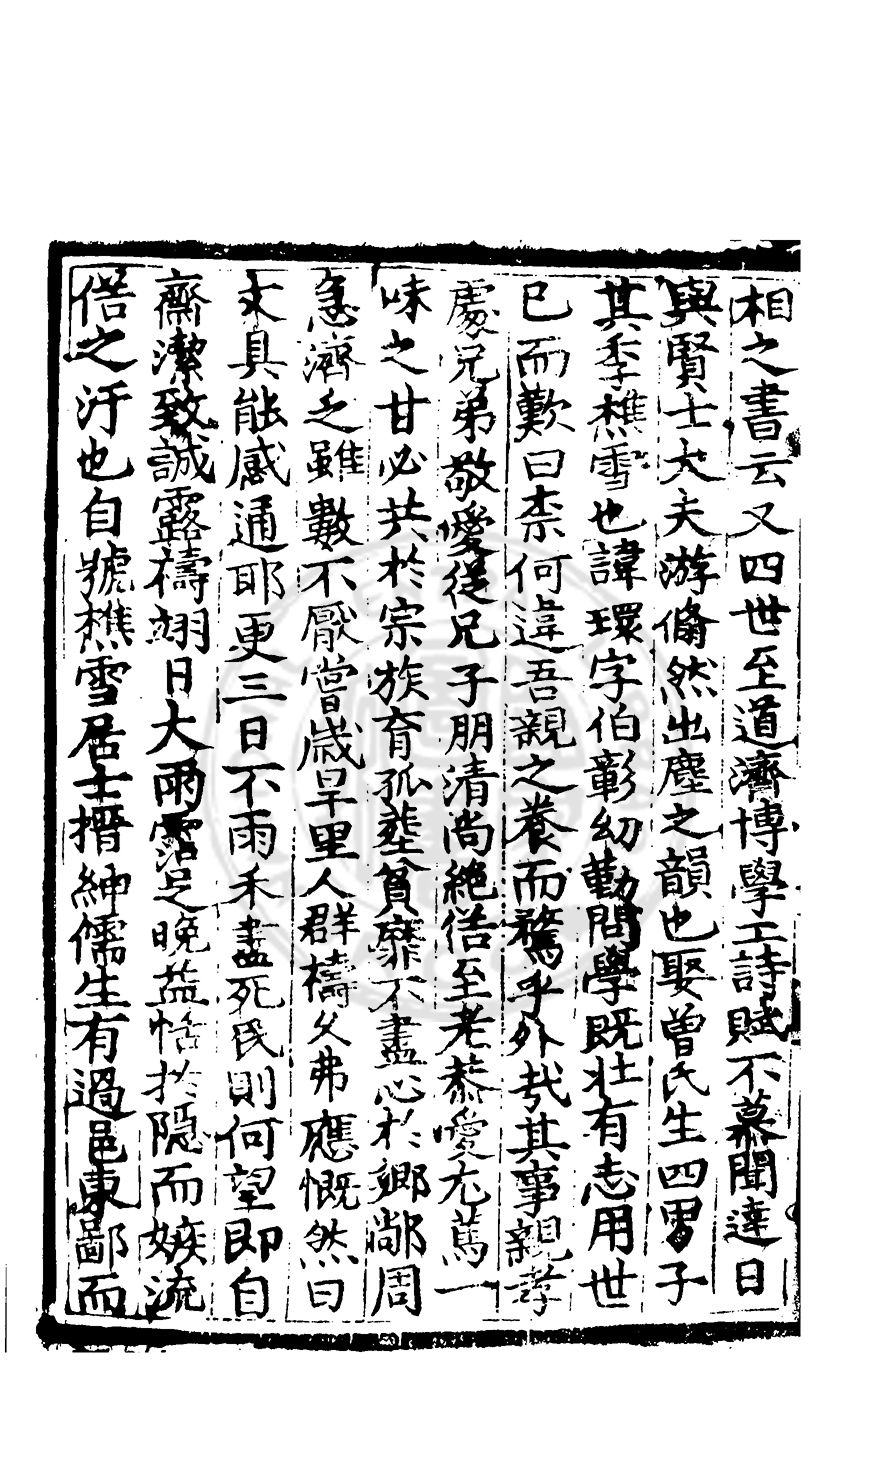 相之書云又四世至道濟博學工詩賦不慕聞達日
與賢士大夫游翛然出塵之韻也娶曾氏生四男子
其季樵雪也諱環字伯彰幼勤問學既壯有志用世
已而歎曰柰何違吾親之養而騖乎外㢤其事親孝
處兄弟敬愛從兄子朋清尚絶俗至老恭愛尤篤一
味之甘必共於宗族育孤塟貧靡不盡心於鄉鄰周
急濟乏雖數不厭嘗歲旱里人群禱乆弗應慨然曰
文具能感通耶更三日不雨禾盡死民則何望即自
齋潔致誠露禱翊日大雨霑足晚益恬於隠而嫉流
俗之汙也自號樵雪居士搢紳儒生有過邑東鄙而